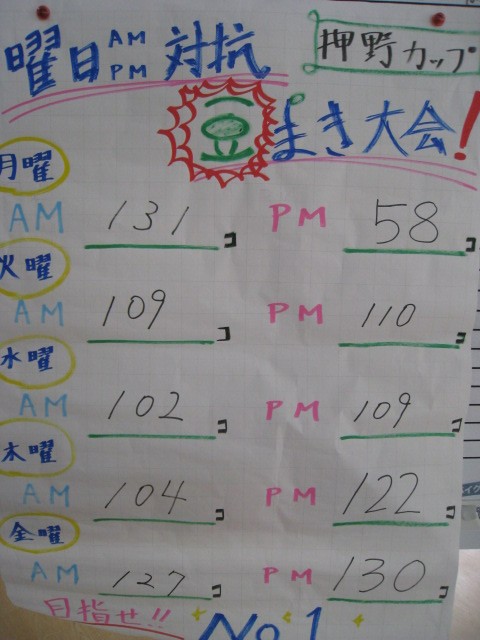 曜日AM PM対抗 押野カップ
豆まき大会!
月曜
AM 131コ PM 58コ
火曜
AM 109コ PM 110コ
水曜
AM 102コ PM 109コ
木曜
AM 104コ PM 122コ
金曜
AM 127コ PM 130コ
目指せ!! No.1